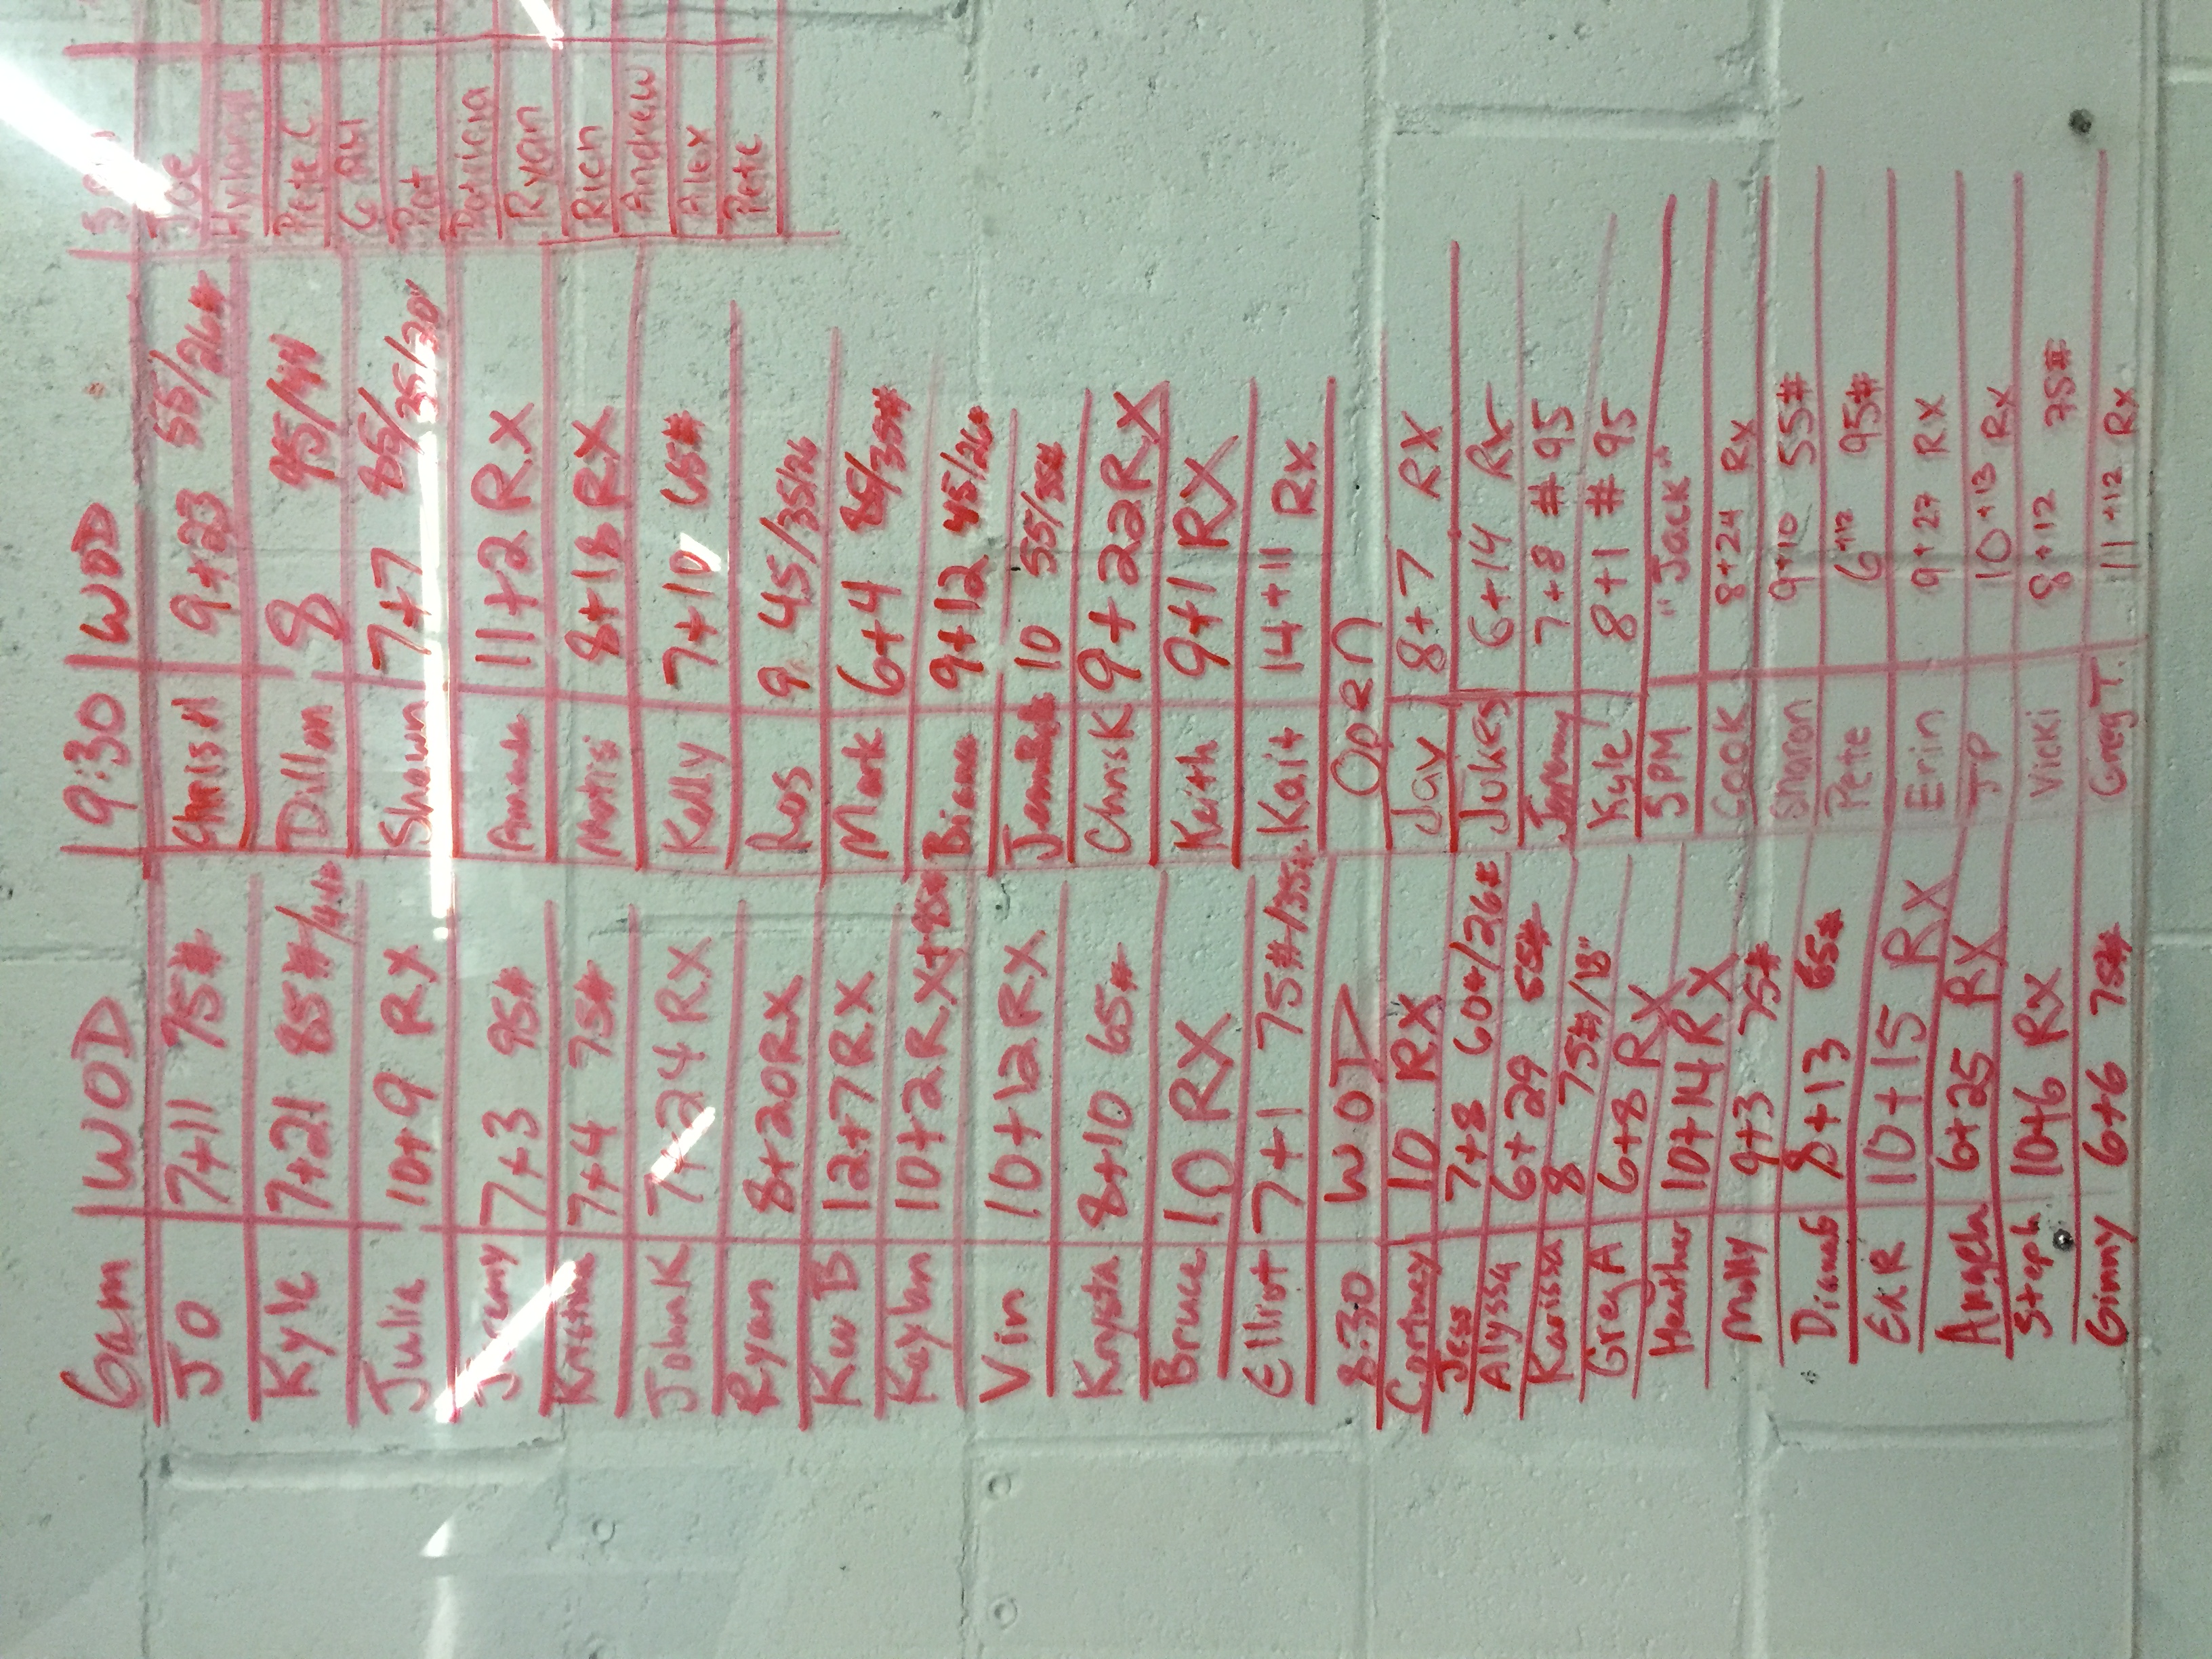 6am WOD
JO 7+11 75#
Kyle 7+21 85#/44#
Julie 10+9 RX
Jeremy 7+3 95#
Kristine 7+4 75#
John K 7+24 RX
Ryan 8+20 RX
Kw B 12+7 RX
Kaylyn 10+2 RX+85#
Vin 10+12 RX
Krysta 8+10 65#
Bruce 10 RX
Elliot 7+1 75#/35#
8:30 WOD
Cortney 10 RX
Jess 7+8 60#/26#
Alyssa 6+29 55#
Karissa 8 75#/18"
Greg A 6+8 RX
Heather 10+14 RX
Molly 9+3 75#
Diane G 8+13 65#
Ek R 10+15 RX
Angela 6+25 RX
Steph 10+6 RX
Ginny 6+6 75#
9:30 WOD
Chris M 9+23 55/26#
Dillon 8 95/44
Shawn 7+7 85/35/20"
Amanda 11+2 RX
Matis 8+18 RX
Kelly 7+10 65#
Ros 9 45/35/26
Mark 6+4 85/35#
Briana 9+12 45/26#
10 55/35#
Chris K 9+22 RX
Keith 9+1 RX
Kait 14+11 RX
Open
Jay 8+7 RX
Jukes 6+14 RX
Jeremy 7+8 #95
Kyle 8+1 #95
5PM "Jack"
Cook 8+24 RX
Sharon 9+10 55#
Pete 6+12 95#
Erin 9+27 RX
JP 10+13 RX
Vicki 8+12 75#
Greg T. 11+12 RX
Joe
Hyland
Pete C
Pat
Ryan
Rich
Andrew
Alex
Pete